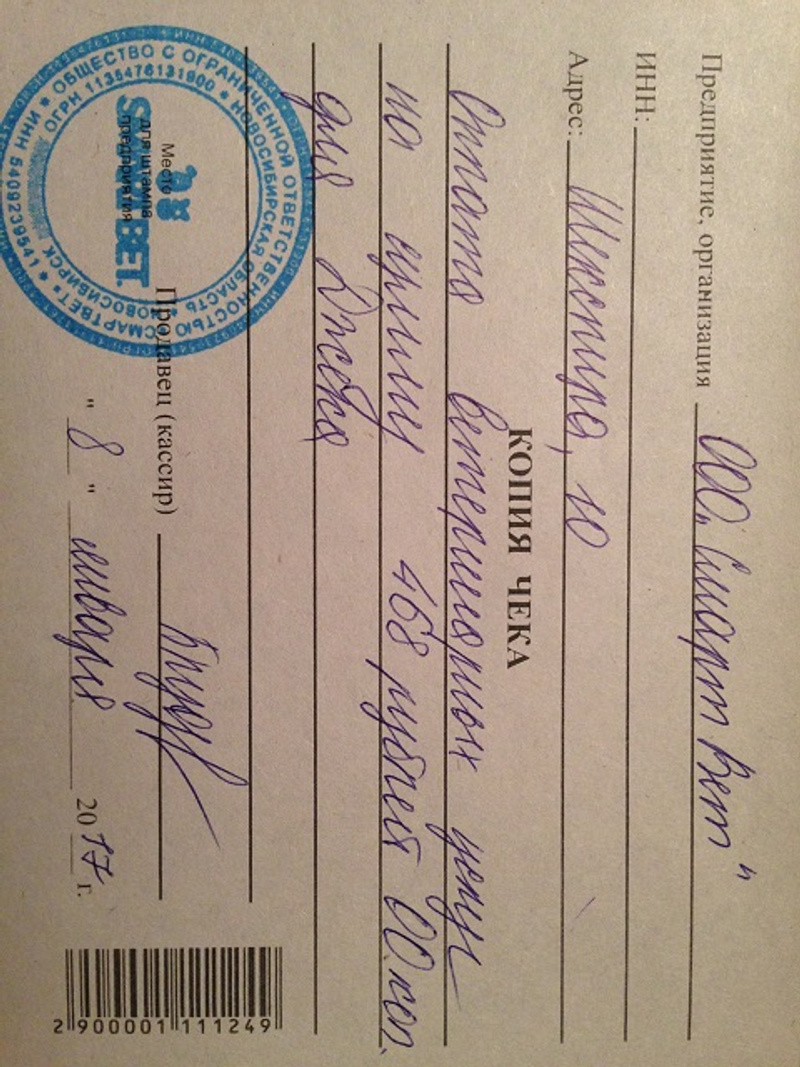 Предприятие, организация ООО „Смарт Вет"
ИНН:
Адрес: Шекспира, 10
КОПИЯ ЧЕКА
Оплата ветеринарных услуг
на сумму 468 рублей 00 коп.
для Джека
Продавец (кассир)
" 8 " января 2017 г.
Место
для штампа
предприятия
SMARTВЕТ.
ОБЩЕСТВО С ОГРАНИЧЕННОЙ ОТВЕТСТВЕННОСТЬЮ «СМАРТВЕТ»
ОГРН 1135476131900 * НОВОСИБИРСКАЯ ОБЛАСТЬ
НОВОСИБИРСК
ИНН
2 900001 111249